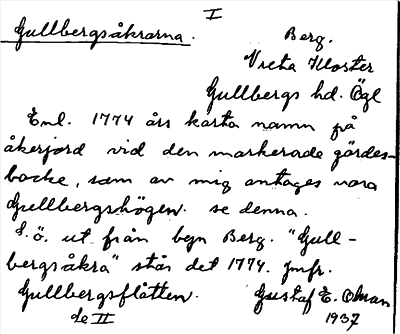 I
Gullbergsåkrarna.
Berg.
Vreta Kloster
Gullbergs hd. Ögl
Enl. 1774 års karta namn på
åkerjord vid den markerade gärdes-
backe, som av mig antages vara
Gullbergshögen. se denna.
S.ö. ut från byn Berg. "Gull-
bergsåkra" står det 1774. Jmfr.
Gullbergsflätten. Gustaf E. Ohman
de II 1937